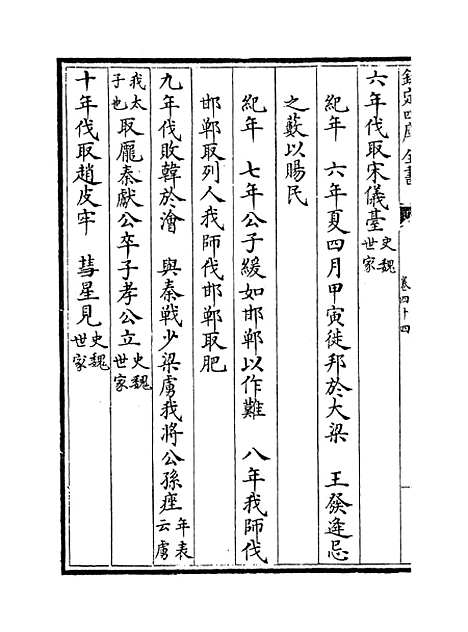 欽定四庫全書 卷四十四
六年伐取宋儀臺史魏世家
紀年 六年夏四月甲寅徙邦於大梁 王發逄忌
之藪以賜民
紀年 七年公子緩如邯鄲以作難 八年我師伐
邯鄲取列人我師伐邯鄲取肥
九年伐敗韓於澮 與秦戰少梁虜我將公孫痤年表云虜
我太子也取龐秦獻公卒子孝公立史魏世家
十年伐取趙皮牢 彗星見史魏世家